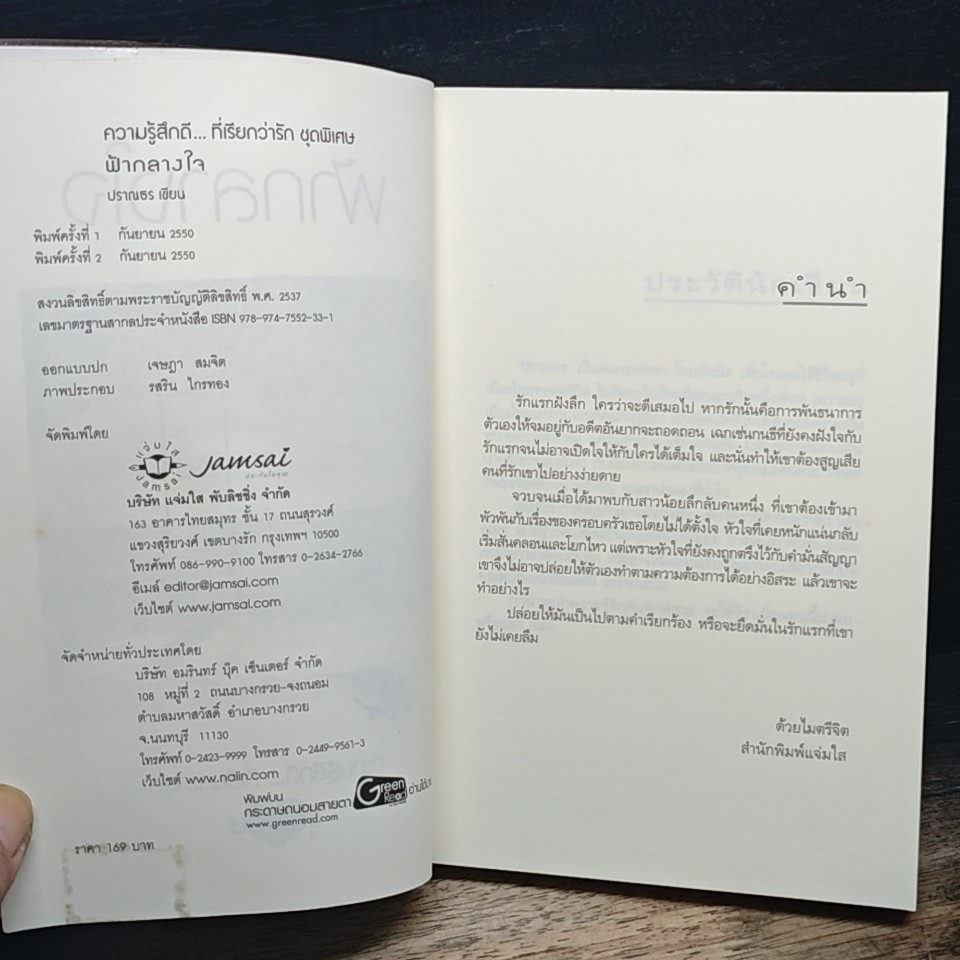 ความรู้สึกดี... ที่เรียกว่ารัก ชุดพิเศษ
ฟ้ากลางใจ
ปราณธร เขียน
พิมพ์ครั้งที่ 1 กันยายน 2550
พิมพ์ครั้งที่ 2 กันยายน 2550
สงวนลิขสิทธิ์ตามพระราชบัญญัติลิขสิทธิ์ พ.ศ. 2537
เลขมาตรฐานสากลประจำหนังสือ ISBN 978-974-7552-33-1
ออกแบบปก เจษฎา สมจิต
ภาพประกอบ รสริน ไกรทอง
จัดพิมพ์โดย
แจ่มใส
Jamsai
jamsai
บริษัท แจ่มใส พับลิชชิ่ง จำกัด
163 อาคารไทยสมุทร ชั้น 17 ถนนสุรวงศ์
แขวงสุริยวงศ์ เขตบางรัก กรุงเทพฯ 10500
โทรศัพท์ 086-990-9100 โทรสาร 0-2634-2766
อีเมล์ editor@jamsai.com
เว็บไซต์ www.jamsai.com
จัดจำหน่ายทั่วประเทศโดย
บริษัท อมรินทร์ บุ๊ค เซ็นเตอร์ จำกัด
108 หมู่ที่ 2 ถนนบางกรวย-จงถนอม
ตำบลมหาสวัสดิ์ อำเภอบางกรวย
จ.นนทบุรี 11130
โทรศัพท์ 0-2423-9999 โทรสาร 0-2449-9561-3
เว็บไซต์ www.naiin.com
พิมพ์บน
กระดาษถนอมสายตา
www.greenread.com
Green
Read
ราคา 169 บาท
คำนำ
รักแรกฝังลึก ใครว่าจะดีเสมอไป หากรักนั้นคือการพันธนาการ
ตัวเองให้จมอยู่กับอดีตอันยากจะถอดถอน เฉกเช่นกนธีที่ยังคงฝังใจกับ
รักแรกจนไม่อาจเปิดใจให้กับใครได้เต็มใจ และนั่นทำให้เขาต้องสูญเสีย
คนที่รักเขาไปอย่างง่ายดาย
จวบจนเมื่อได้มาพบกับสาวน้อยลึกลับคนหนึ่ง ที่เขาต้องเข้ามา
พัวพันกับเรื่องของครอบครัวเธอโดยไม่ได้ตั้งใจ หัวใจที่เคยหนักแน่นกลับ
เริ่มสั่นคลอนและโยกไหว แต่เพราะหัวใจที่ยังคงถูกตรึงไว้กับคำมั่นสัญญา
เขาจึงไม่อาจปล่อยให้ตัวเองทำตามความต้องการได้อย่างอิสระ แล้วเขาจะ
ทำอย่างไร
ปล่อยให้มันเป็นไปตามคำเรียกร้อง หรือจะยึดมั่นในรักแรกที่เขา
ยังไม่เคยลืม
ด้วยไมตรีจิต
สำนักพิมพ์แจ่มใส